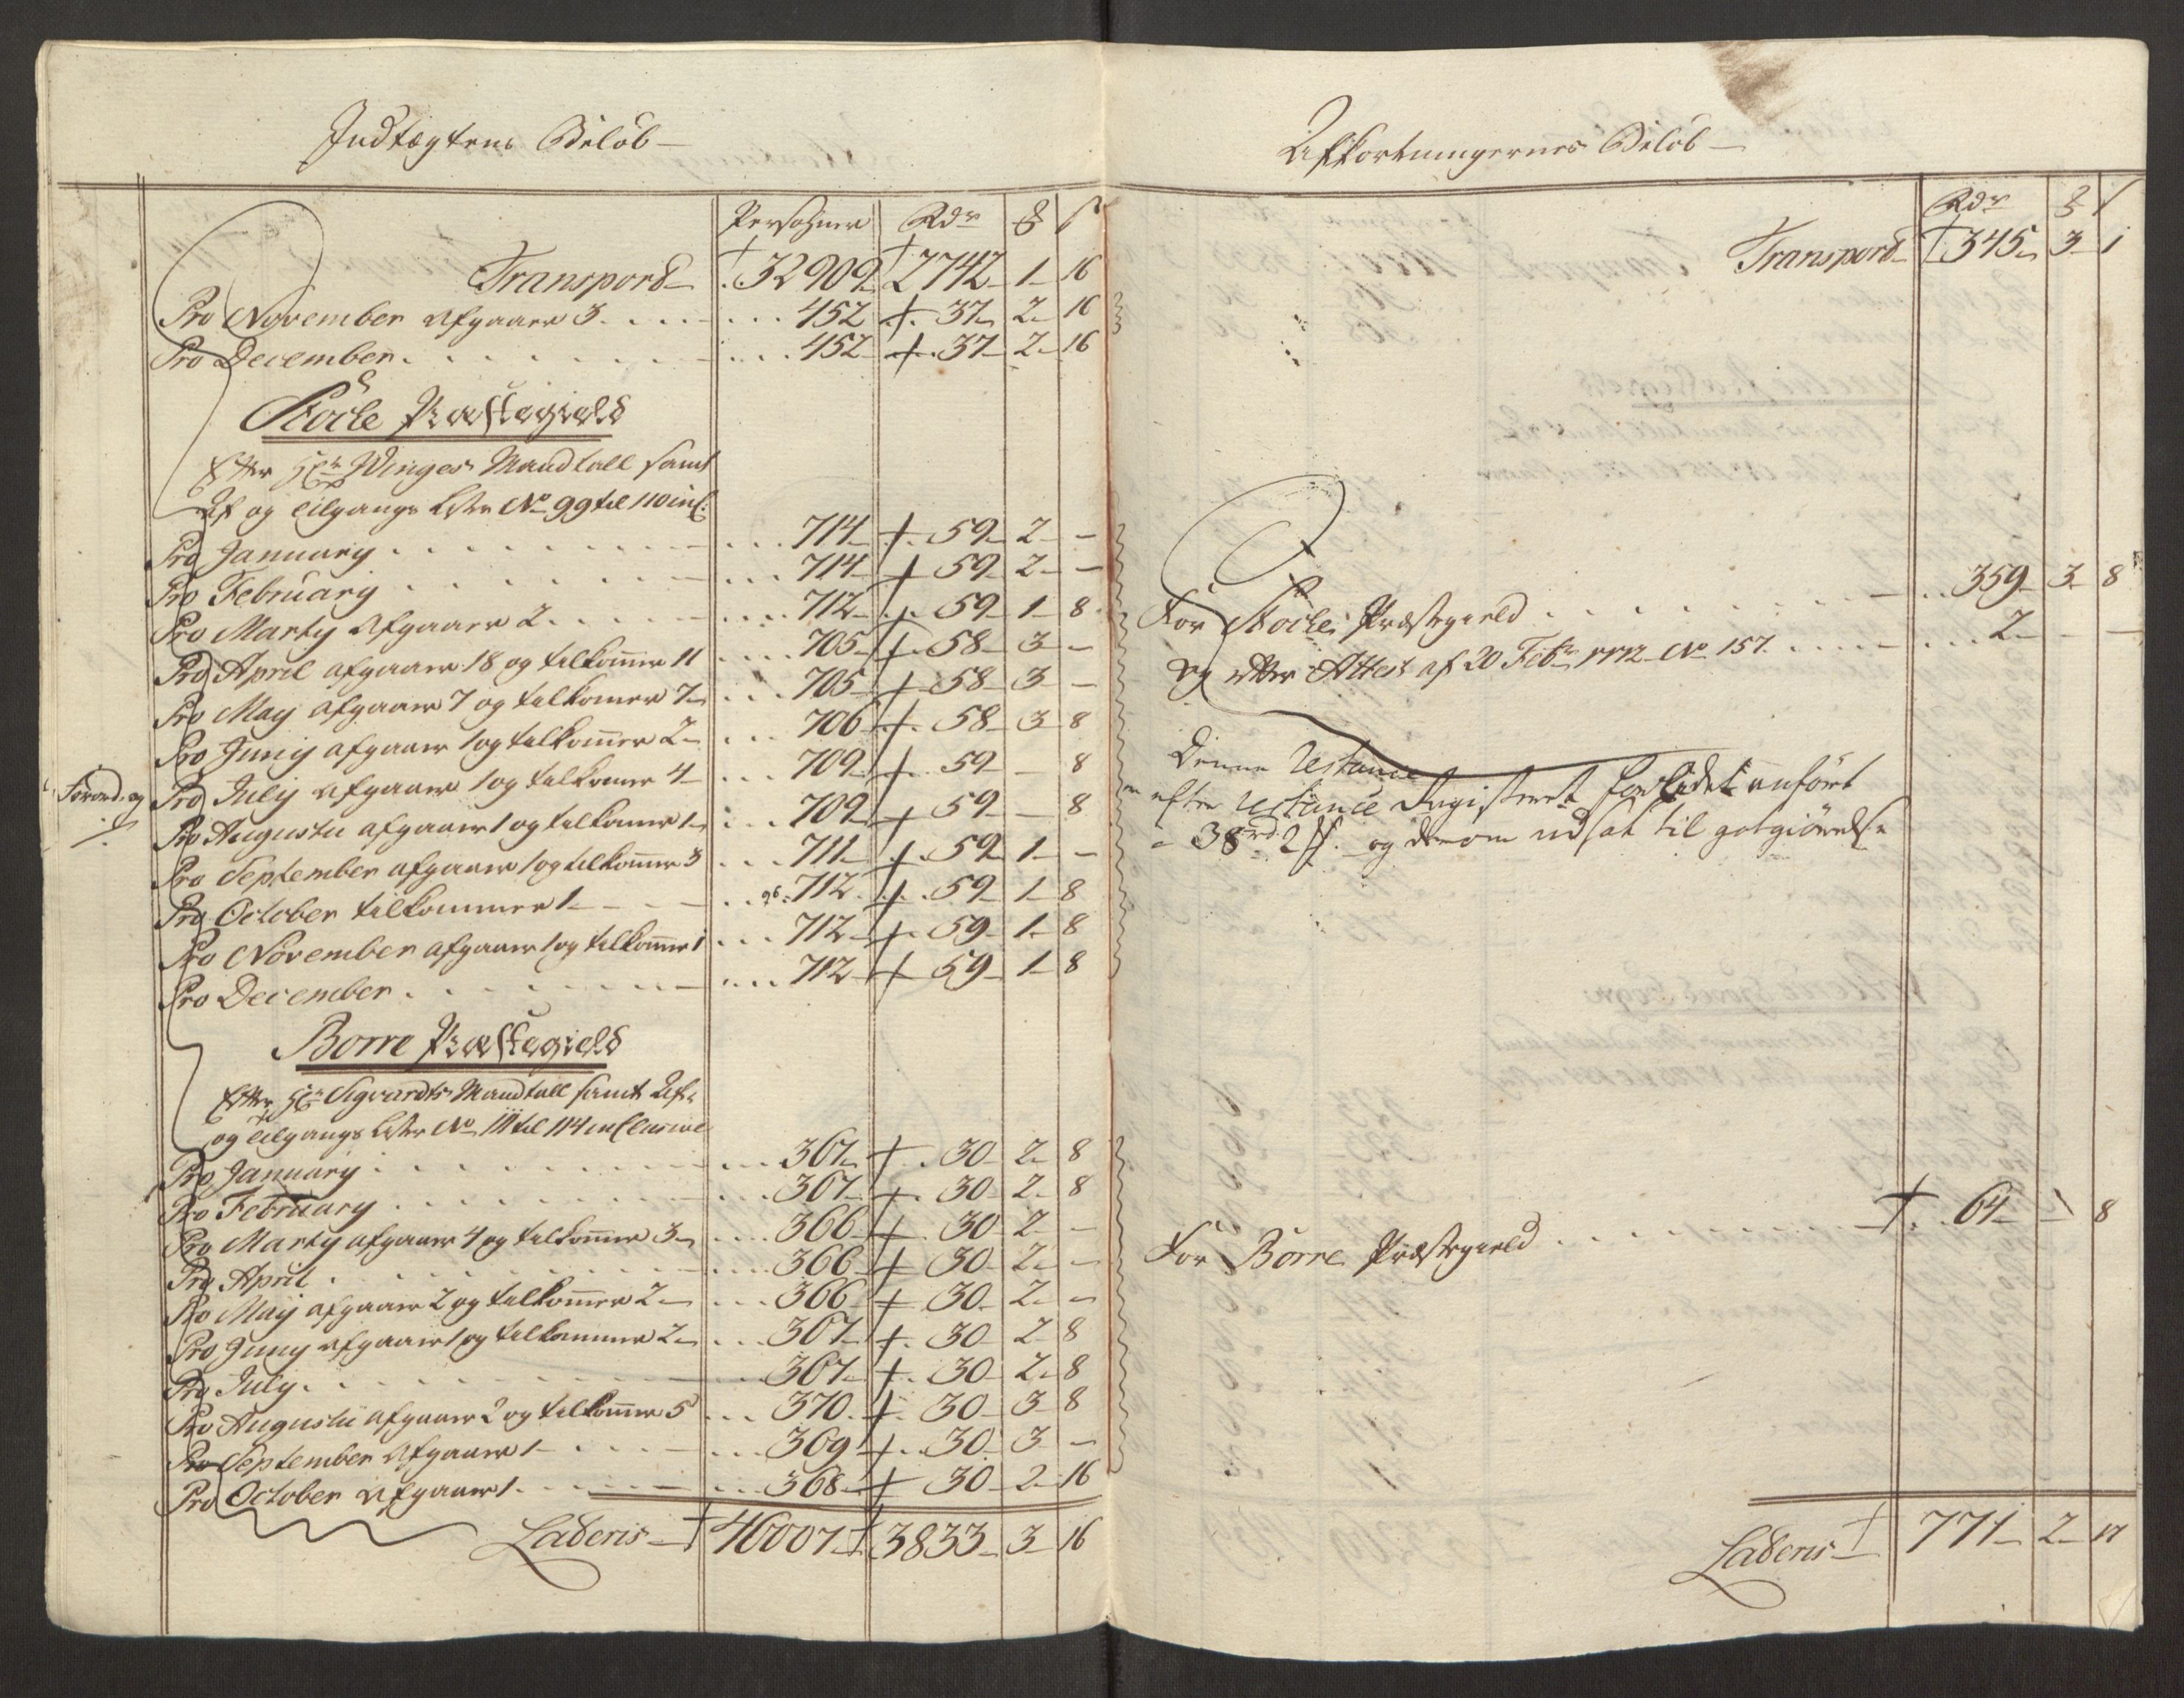 Indtægtens Beløb
Persohner Rdr ß
Transpord 32909 2742 1 16
Pro November afgaaer 3 452 37 2 16
Pro December 452 37 2 16
Stocke Præstegield
Efter Hr Winges Mandtall samt
Af og tilgangs Liste No 99 til 110 incl:
Pro January 714 59 2 -
Pro February 714 59 2 -
Pro Marty afgaaer 2 712 59 1 8
Pro April afgaaer 18 og tilkommer 11 705 58 3 -
Pro May afgaaer 7 og tilkommer 7 705 58 3 -
Pro Juny afgaaer 1 og tilkommer 2 706 58 3 8
Pro July afgaaer 1 og tilkommer 4 709 59 - 8
Pro Augusti afgaaer 1 og tilkommer 1 709 59 - 8
Pro September afgaaer 1 og tilkommer 3 711 59 1 -
Pro October tilkommer 1 712 59 1 8
Pro November afgaaer 1 og tilkommer 1 712 59 1 8
Pro December 712 59 1 8
Borre Præstegield
Efter Hr Sigvardts Mandtall samt Af-
og tilgangs Liste No 111 til 114 inclusive
Pro January 367 30 2 8
Pro February 367 30 2 8
Pro Marty afgaaer 4 og tilkommer 3 366 30 2 -
Pro April 366 30 2 -
Pro May afgaaer 2 og tilkommer 2 366 30 2 -
Pro Juny afgaaer 1 og tilkommer 2 367 30 2 8
Pro July 367 30 2 8
Pro Augusti afgaaer 2 og tilkommer 5 370 30 3 8
Pro September afgaaer 1 369 30 3 -
Pro October afgaaer 1 368 30 2 16
Lateris 46007 3833 3 16
Afkortningernes Beløb
Rdr ß
Transpord 345 3 1
For Stocke Præstegield 359 3 8
og efter Attest af 20 Febr 1772 No 157 2 - -
Denne Restance
efter Restance Registeret anført
38 rd 2 ß og derom udsat til godtgiørelse
For Borre Præstegield 64 - 8
Lateris 771 2 17